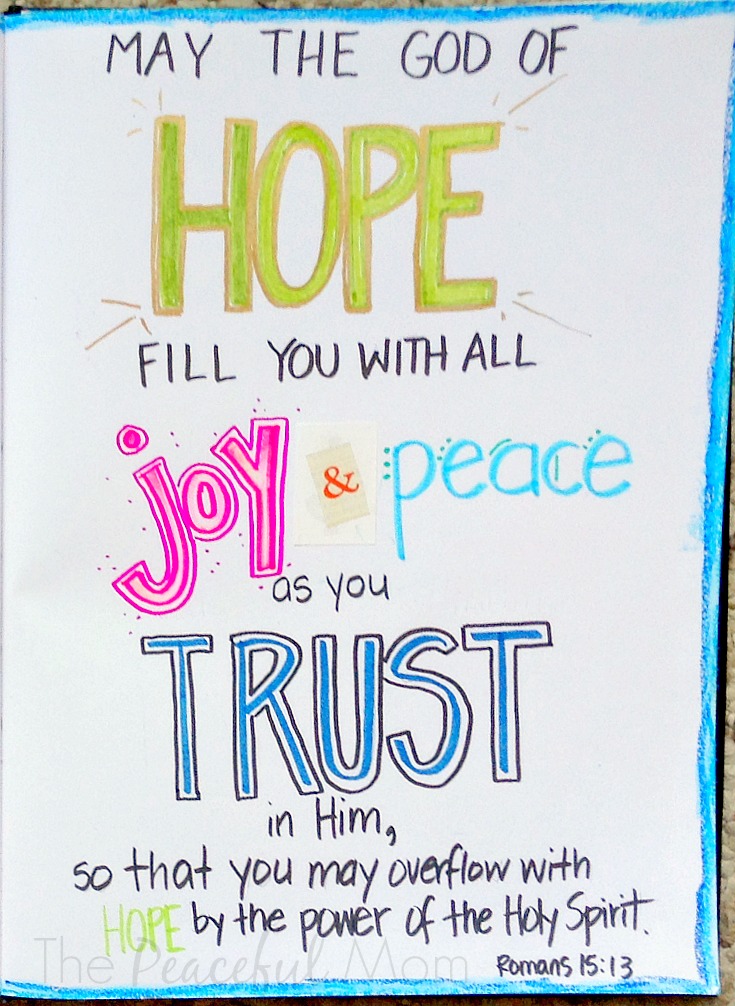 MAY THE GOD OF
HOPE
FILL YOU WITH ALL
joy & peace
as you
TRUST
in Him,
so that you may overflow with
HOPE by the power of the Holy Spirit.
Romans 15:13
The Peaceful Mom